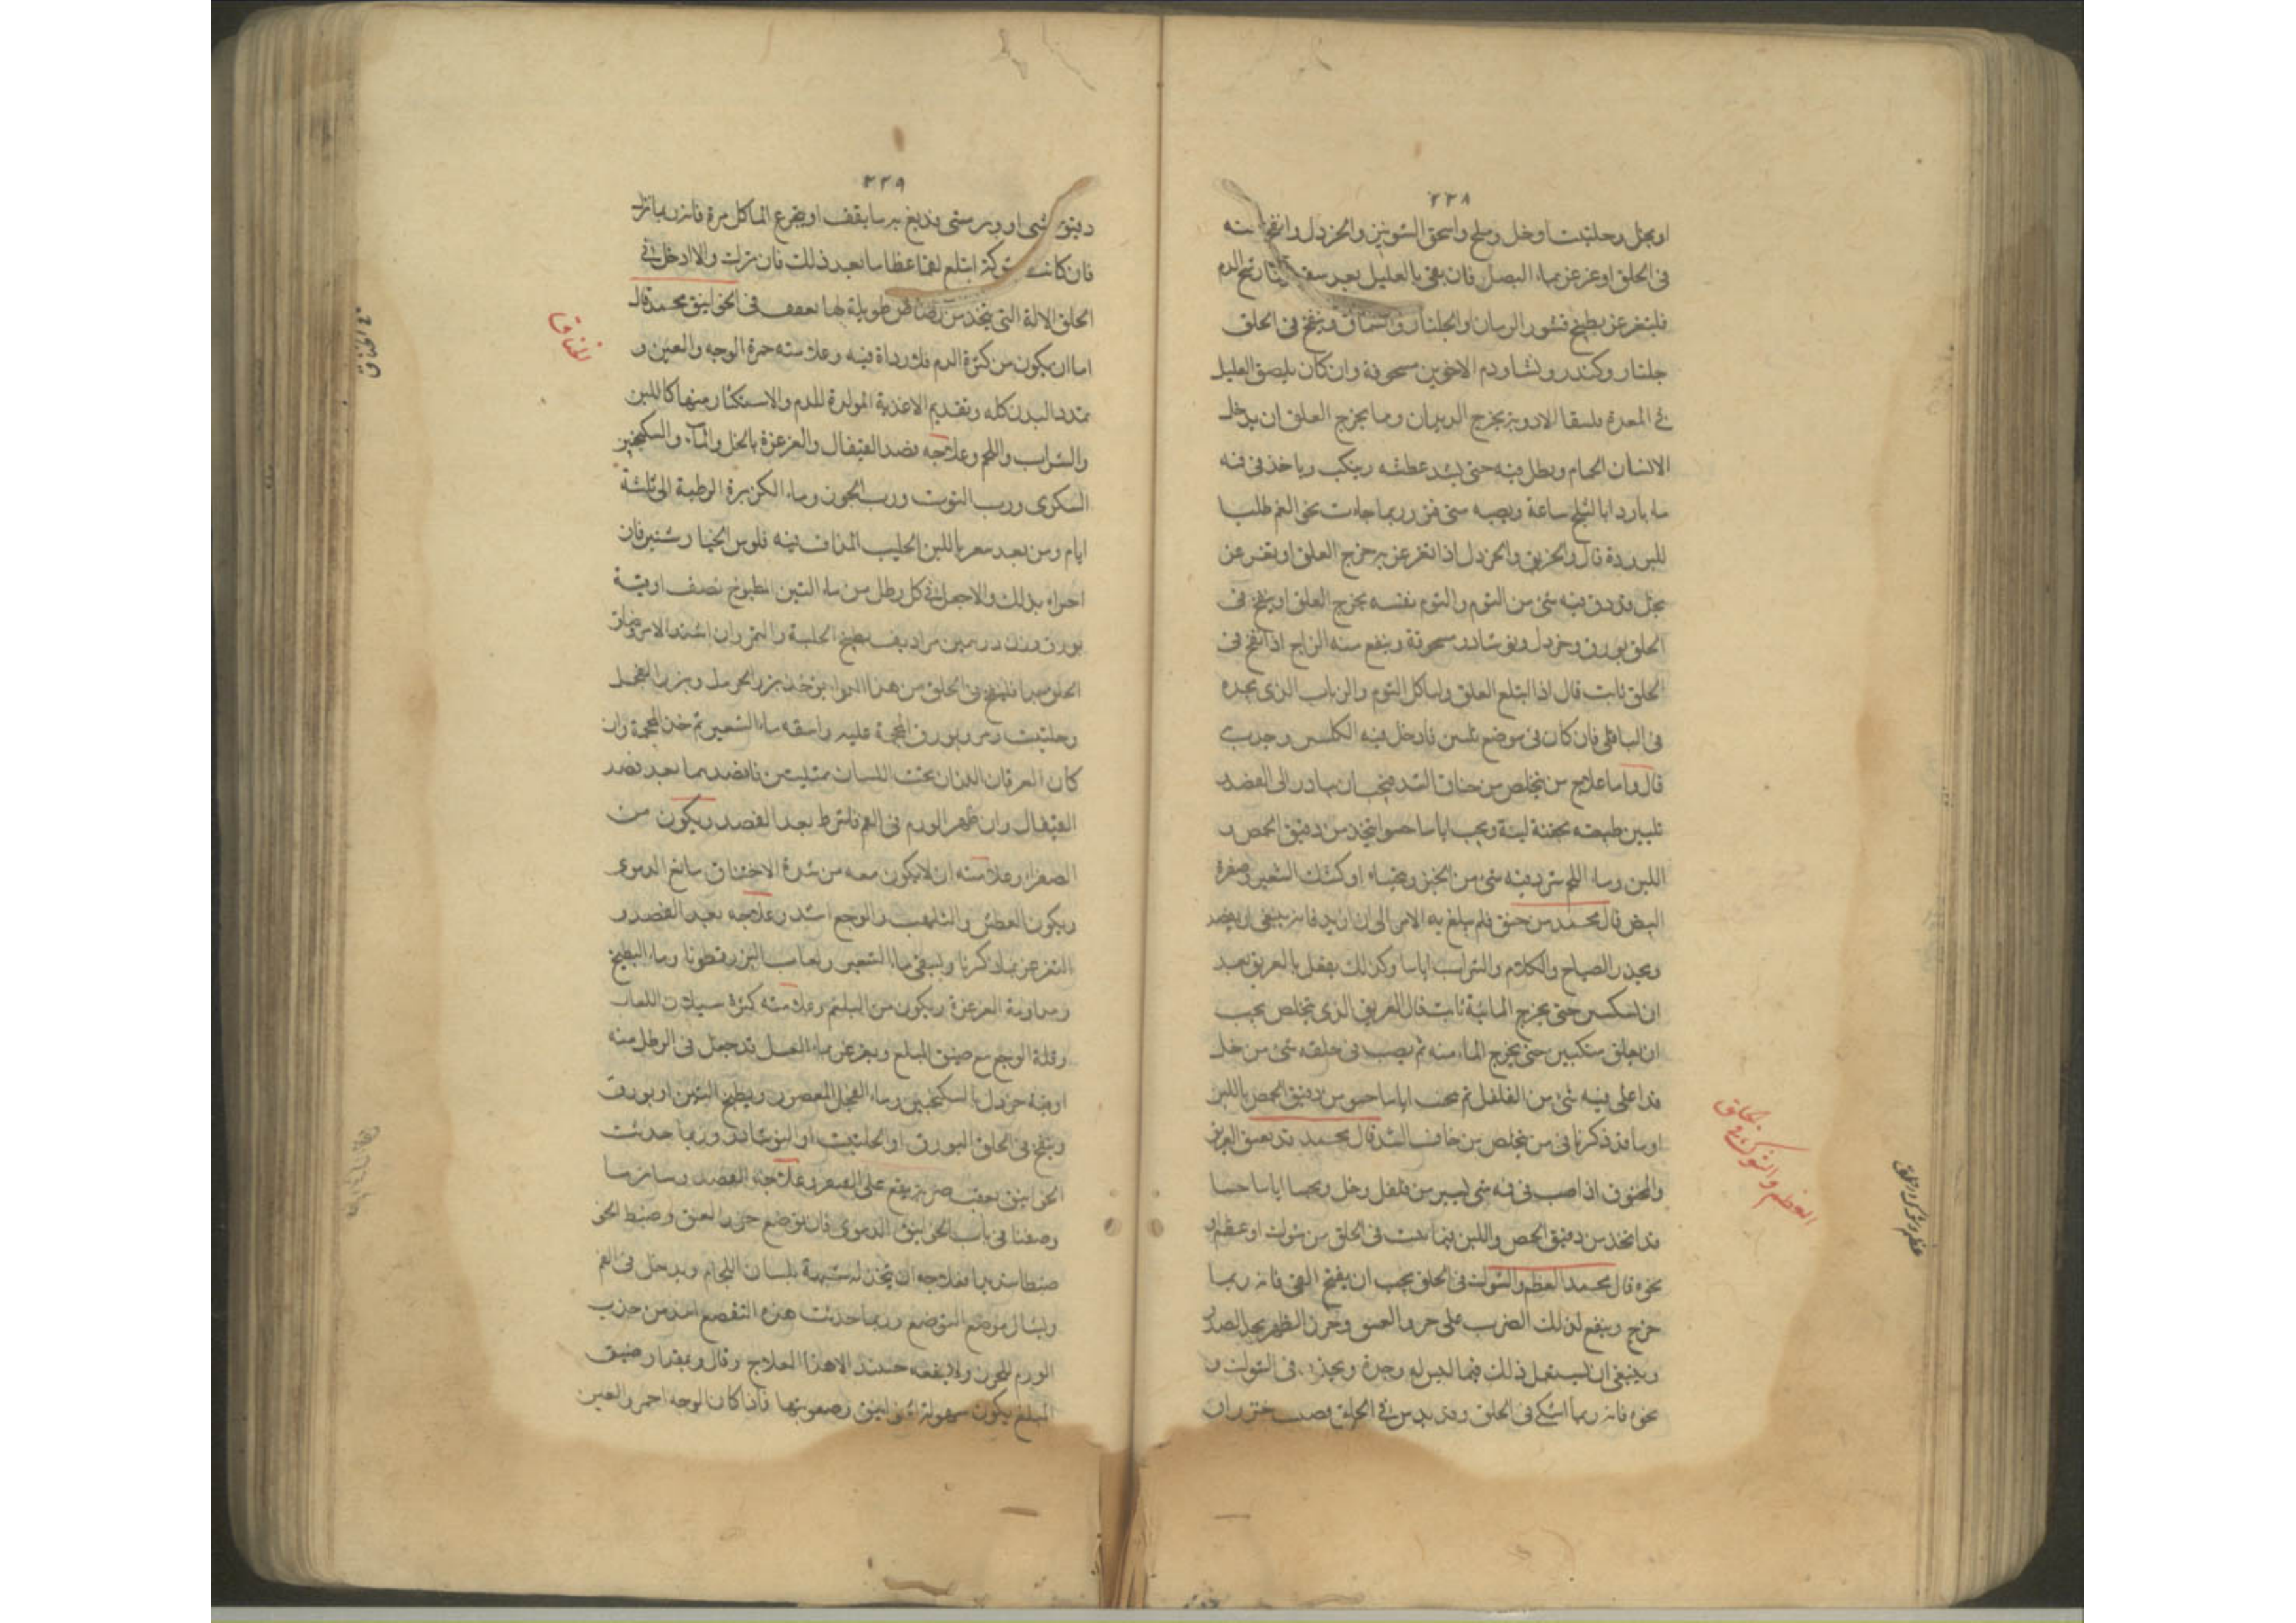 ٢٣٨
او بخل وحلتيت او خل وملح واسحق الشونيز والخردل وانفخ منه
فى الحلق او غرغر بماء البصل فان بقى بالعليل بعد
فليتغرغر بطبيخ قشور الرمان والجلنار والسماق وينفخ فى الحلق
جلنار وكندر ونشا ودم الاخوين مسحوقة وان كان يلصق العليل
فى المعدة فلسقا الادوية يخرج الديدان ومما يخرج العلق ان يدخل
الانسان الحمام ويطل فيه حتى يشد عطشه وياخذ فى فيه
ماء باردا بالثلج ساعة ويصبه متى فتر وربما جاءت نحو الفم طلبا
للبرودة قال والخربق والخردل اذا تغرغر به خرج العلق او تغرغر
بخل قد دق فيه شى من الثوم والثوم نفسه يخرج العلق او ينفخ فى
الحلق بورق وخردل ونوشادر مسحوقة وينفع منه الزاج اذا نفخ فى
الحلق ثابت قال اذا ابتلع العلق وليأكل الثوم والذباب الذى يجده
فى الباقلى فان كان فى موضع يلمس فادخل فيه الكلبتين وجذب
قال واما علاج من يتخلص من خناق الشد فيجب ان يبادر الى الفصد
تليين طبيعته بحقنة لينة ويجب اياما حسوا يتخذ من دقيق الحمص و
اللبن وماء اللحم يثرد فيه شى من الخبز او كشك الشعير وصفرة
البيض قال محمد من خنق فلم يبلغ به الامر الى ان ازبد فانه ينبغى ان يفصد
ويحذر الصياح والكلام والشراب اياما وكذلك يفعل بالغريق بعد
ان ينكس حتى يخرج المائية ثابت قال الغريق الذى يتخلص يجب
ان يعلق منكسا حتى يخرج الماء منه ثم يصب فى حلقه شى من خل
قد اغلى فيه شى من الفلفل ثم يحسا اياما حسو من دقيق الحمص باللبن
او ما قد ذكرنا فى من يتخلص من خناق الشد قال محمد قد يعيش الغريق
والمخنوق اذا صب فى فيه شى يسير من فلفل وخل ويحسا اياما حسا
قد اتخذ من دقيق الحمص واللبن فيما نشب فى الحلق من شوك او عظم او
نحوه قال محمد العظم والشوك فى الحلق يجب ان يفتح الفم فانه ربما
خرج وينفع لذلك الضرب على خرز العنق وخرز الظهر بحذا الصدر
وينبغى ان يستعمل ذلك فيما ليس له وخزة ويحذر فى الشوك و
نحوه فانه ربما اشكى فى الحلق وقد يدس فى الحلق قصب خيزران
العظم والشوك فى الحلق
٢٣٩
دقيق شى او وتر متى قد بلغ به ما يقف او يجرع الماء كل مرة فانه ربما نزل
فان كانت شوكة ابتلع لقما عظاما بعد ذلك فان نزلت والا ادخل فى
الحلق الالة التى يتخذ من رصاص طويلة لها تعقف فى الخوانيق محمد قال
اما ان يكون من كثرة الدم فلا رداة فيه وعلامته حمرة الوجه والعين و
تمدد البدن كله وتقديم الاغذية المولدة للدم والاستكثار منها كاللبن
والشراب واللحم وعلاجه فصد القيفال والغرغرة بالخل والماء والسكنجبين
السكرى ورب التوت ورب الجوز وماء الكزبرة الرطبة الى ثلثة
ايام ومن بعد باللبن الحليب المداف فيه فلوس الخيار شنبر فان
اجزاه بذلك والا جعل فى كل رطل من ماء التين المطبوخ نصف اوقية
بورق وزن درهمين بطبيخ الحلبة والتمر وان اشتد الامر وضاق
الحلق جدا فلينفخ فى الحلق من هذا الدوا يؤخذ بزر الحرمل وبزر الفجل
وحلتيت ومر وبورق المحجمة عليه واسقه ماء الشعير ثم خذ المحجمة وان
كان العرقان اللذان تحت اللسان ممتلئين فافصدهما بعد فصد
القيفال وان ظهر الورم فى الفم فاشرط بعد الفصد ويكون من
الصفرا وعلامته ان لا يكون معه من شدة الاختناق ما مع الدموى
ويكون العطش والتلهب والوجع اشد وعلاجه بعد الفصد و
التغرغر بما ذكرنا ويسقى ماء الشعير ولعاب البزرقطونا وماء البطيخ
ومداومة الغرغرة ويكون من البلغم وعلامته كثرة سيلان اللعاب
وقلة الوجع مع ضيق المبلع ويغرغر بماء العسل قد جعل فى الرطل منه
اوقية خردل بالسكنجبين وماء الفجل المعصور وبطيخ التين او بورق
وينفخ فى الحلق البورق او الحلتيت او النوشادر وربما حدثت
الخوانيق بعقب ضربة يقع على الصدر وعلاجه الفصد وسائر ما
وصفنا فى باب الخوانيق الدموى فان توضع خرز العنق وضبط الخو
ضبطا شديدا فعلاجه ان يتخذ له شبيهة بلسان اللجام ويدخل فى الفم
ويشال موضع التوضع وربما حدثت هذه التقصع اشد من جذب
الورم للخرز ولا ينفعه حينئذ الا هذا العلاج وقال وبمقدار ضيق
المبلع يكون سهولة الخوانيق وصعوبتها فاذا كان الوجه احمر والعين
الخناق